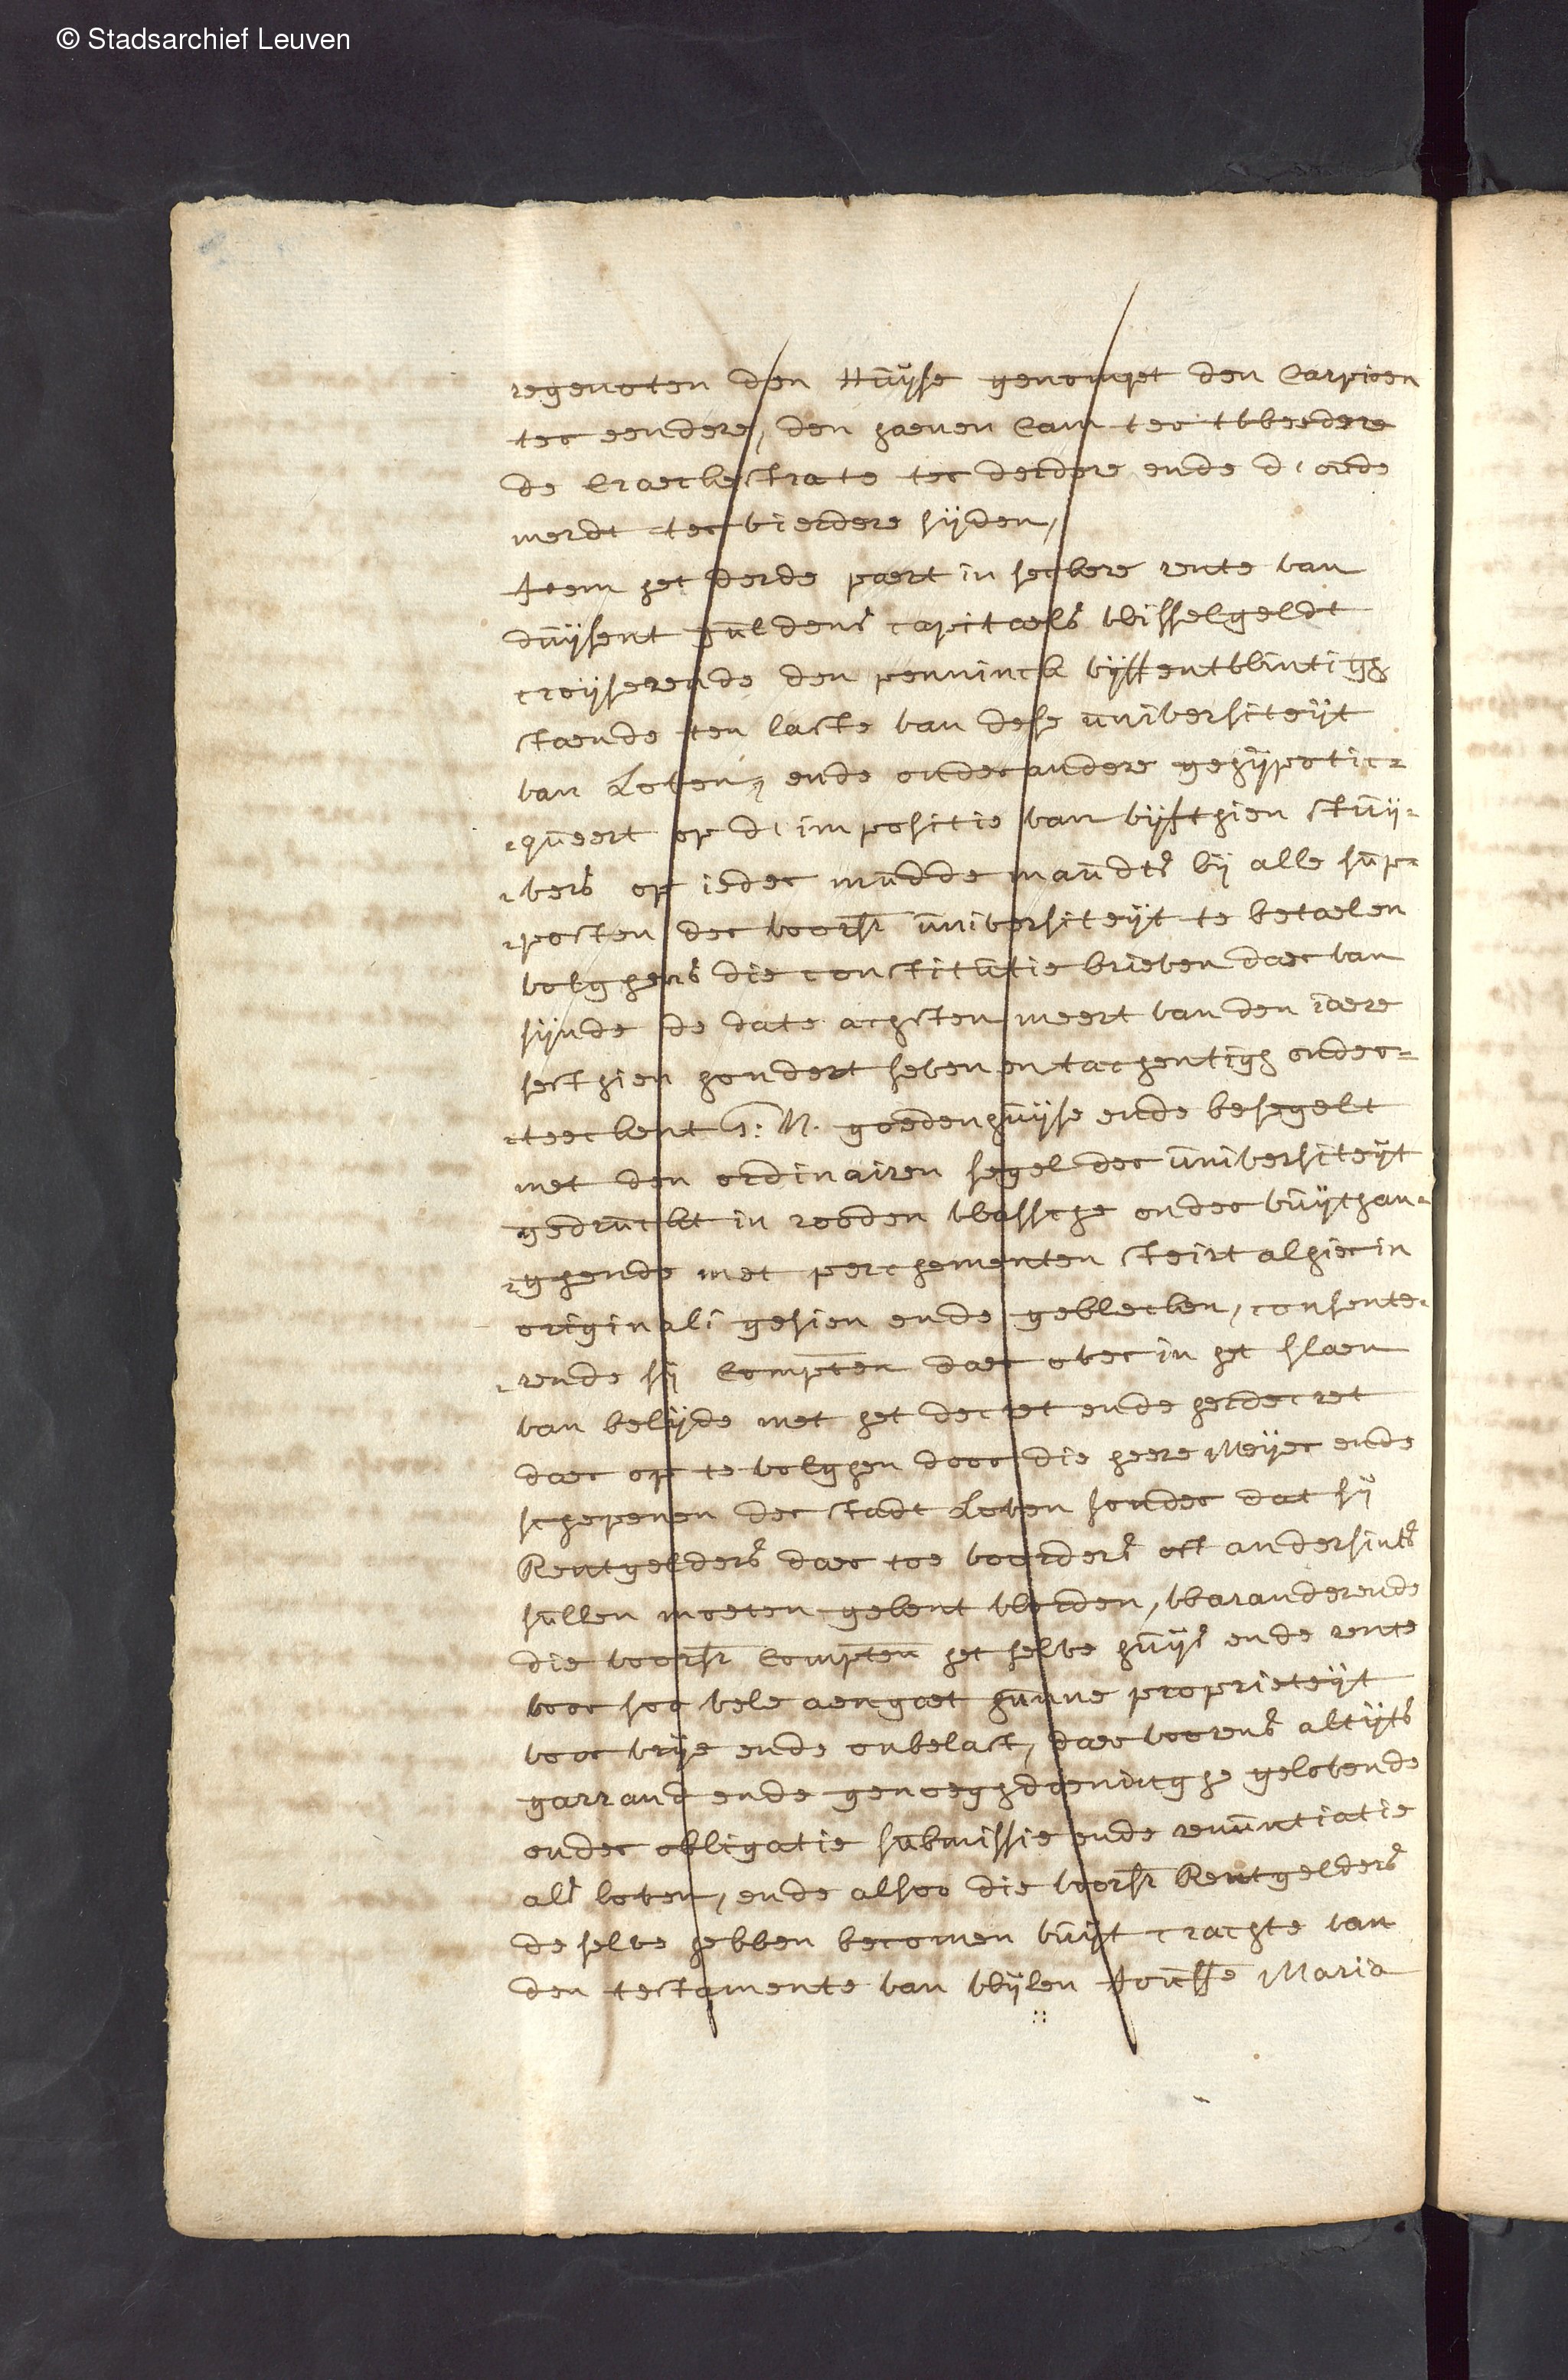 © Stadsarchief Leuven
regenoten den Huijse genompt den Carpioen
ter eendere, den haenen Cam ter tweedere
de Craeckestrate ter derdere ende d'oude
merdt ter vierdere sijden,
Item het derde paert in sekere rente van
duijsent guldens capitaels wisselgeldt
croijserende den penninck vijffentwintigh
staende ten laste van dese universiteijt
van Loven, ende onder andere gehijpotic-
-queert op d'impositie van vijfthien stuij-
-vers op ieder mudde maudts bij alle sup-
-posten der voorsr universiteijt te betaelen
volghens die constitutie brieven daer van
sijnde de date achsten meert vanden iaere
sesthien hondert seven en tachentigh onder-
-teeckent G: M. goedenhuijse ende besegelt
met den ordinairen segel der universiteijt
gedruckt in rooden wassche onder vuijthan-
-ghende met perchementen steirt alhier in
originali gesien ende gebleken, consente-
-rende sij Compten daer over in het slaen
van belijde met het decret ende herdecret
daer op te volghen door die heere Meijer ende
schepenen der stadt Loven sonder dat sij
Rentgelders daer toe voorders oft andersints
sullen moeten gekent worden, waranderende
die voorsr Compten het selve huijs ende rente
voor soo vele aengaet hunne proprieteijt
voor vrije ende onbelast, daer voorens altijts
garrand ende genoeghdoeninghe gelovende
onder obligatie submissie ende renuntiatie
als boven, ende alsoo die voorsr Rentgelders
de selve hebben becomen vuijt crachte van
den testamente van wijlen Jouffe Maria